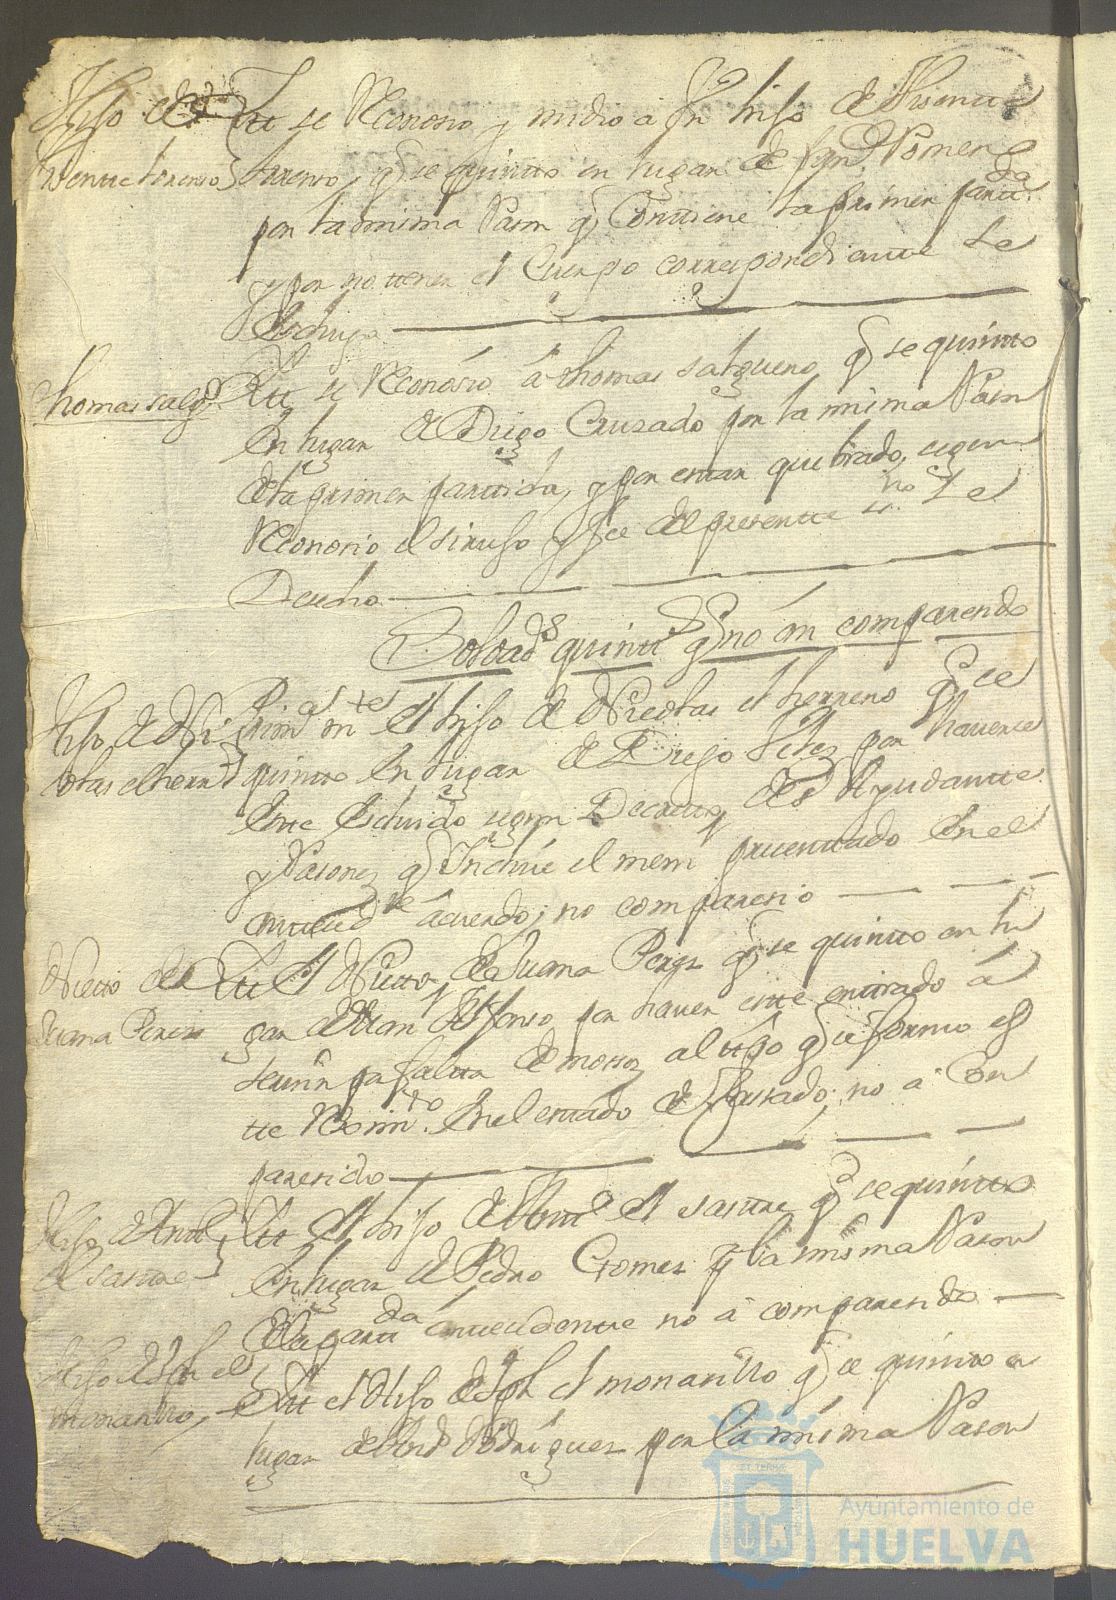 Hijo de
Vicente Lorenso
Itt se Reconosio y midio a Jn hijo de Visente
Lorenso, q se quinto en lugar de Fran Romero
por la misma Rason q Contiene la primer partda
y por no tener el Cuerpo correspondiente se
Escluyo
Thomas salgo
Itt se Reconosió á Thomas salguero q se quinto
En lugar de Diego Cruzado por la misma Rason
de la primer partida, y por estar quebrado, segun
Reconosio el sirujo y fee de presente no se
Dececho
Soldads quints q no án comparesido
Hijo de Ni
colas el herro
Primamte el hijo de Nicolas el herrero q se
quinto En lugar de Diego Peres por haverse
Este Escluido segun Decreto del Ayudante
y Rasones q Incluie el meml presentado En el
antecedte acuerdo; no comparesio
Nieto de
Juana Peres
Itt el Nieto de Juana Peres q se quinto en lu
gar de Juan Alfonso por haver este entrado á
servir por falta de mosos al tpo q se formo es
te Reximto. En el estado de Casado; no a Con
paresido
Hijo de Antto
el sastre
Itt el hijo de Antto el sastre q se quinto
En lugar de Pedro Gomes y la misma Rason
de la partda antecedente no á comparesido
Hijo de Jph el
monarillo
Itt el Hijo de Jph el monarillo q se quinto en
lugar de Rodriguez por la misma Rason
Ayuntamiento de
HUELVA